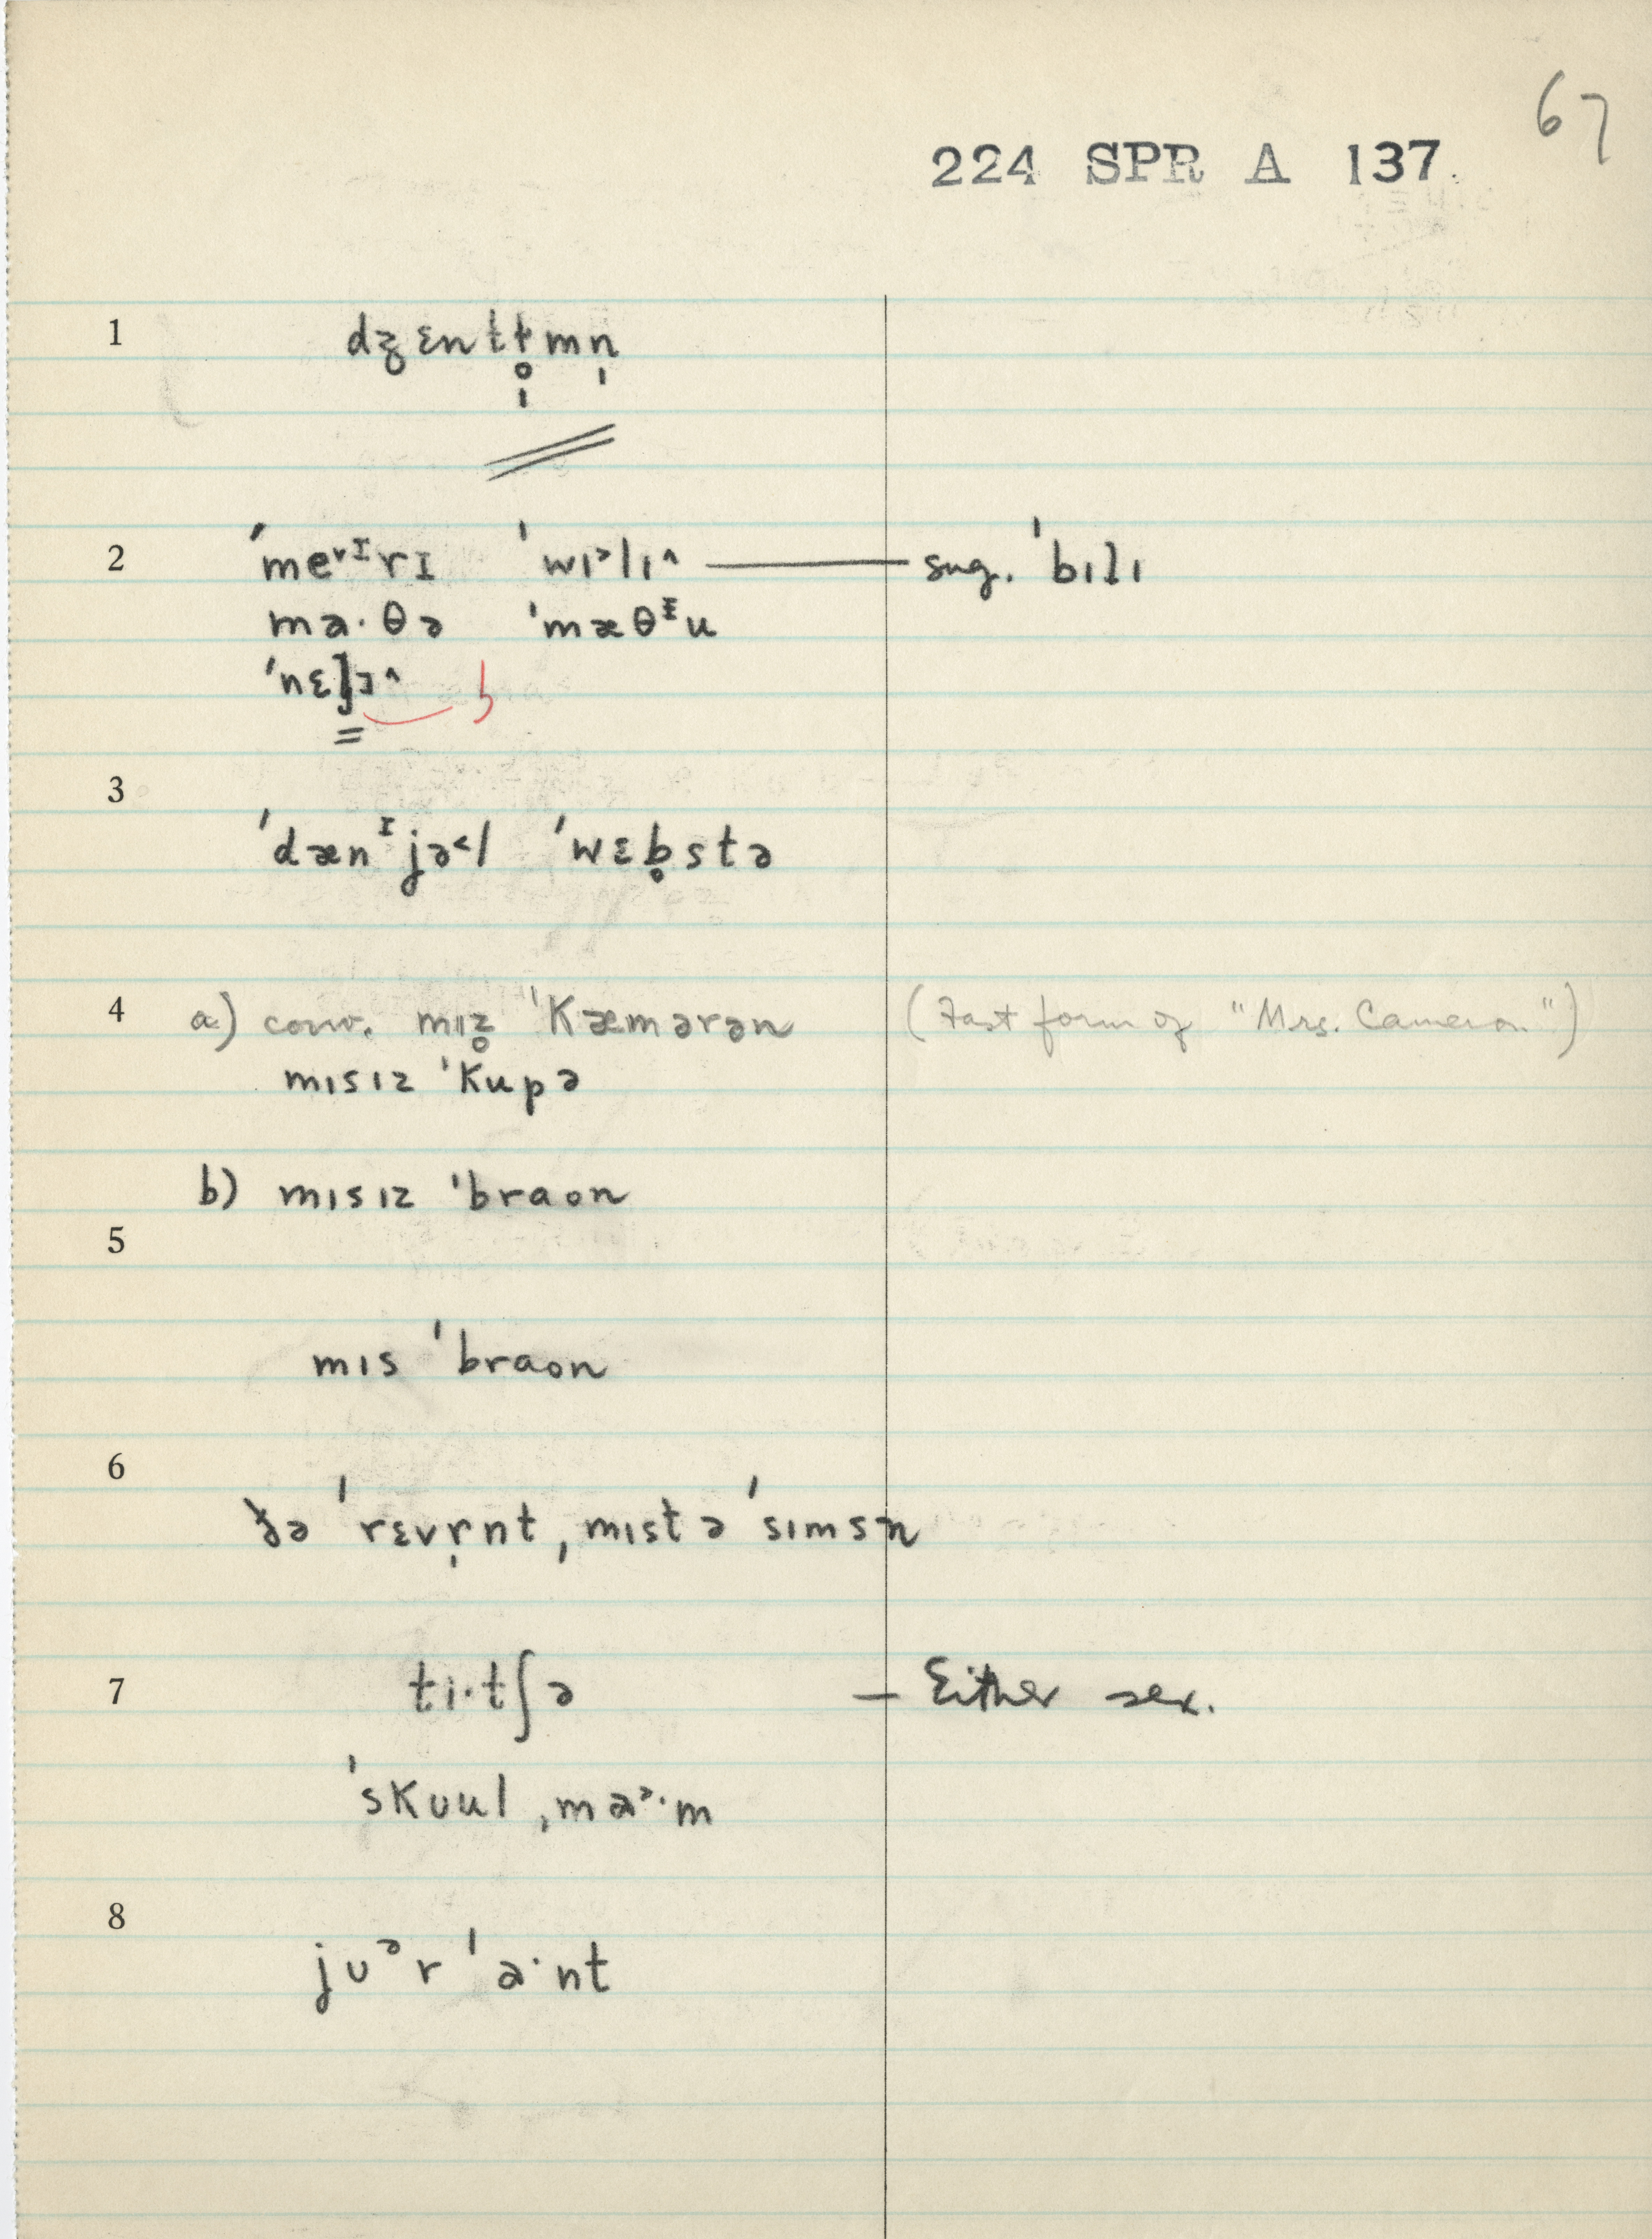 67
224 SPR A 137.
1 dʒɛntɫ̩̊mn̩
2 ˈme˅ᴵrɪ ˈwɪ˃lɪ^ — sug. ˈbɪlɪ
ma·θə ˈmæθᶦu
ˈnɛlɪ^
3
ˈdænᶦjə˂l ˈwɛb̥stə
4 a) conv. mɪz̥ ˈKæmərən (Fast form of "Mrs. Cameron")
mɪsɪz ˈKupə
b) mɪsɪz ˈbraon
5
mɪs ˈbraon
6
ðə ˈrɛvr̩nt ˌmɪstə ˈsɪmsn
7 tɪ·tʃə — Either sex.
ˈsKʊul ˌma˃·m
8
jʊᵊr ˈa·nt